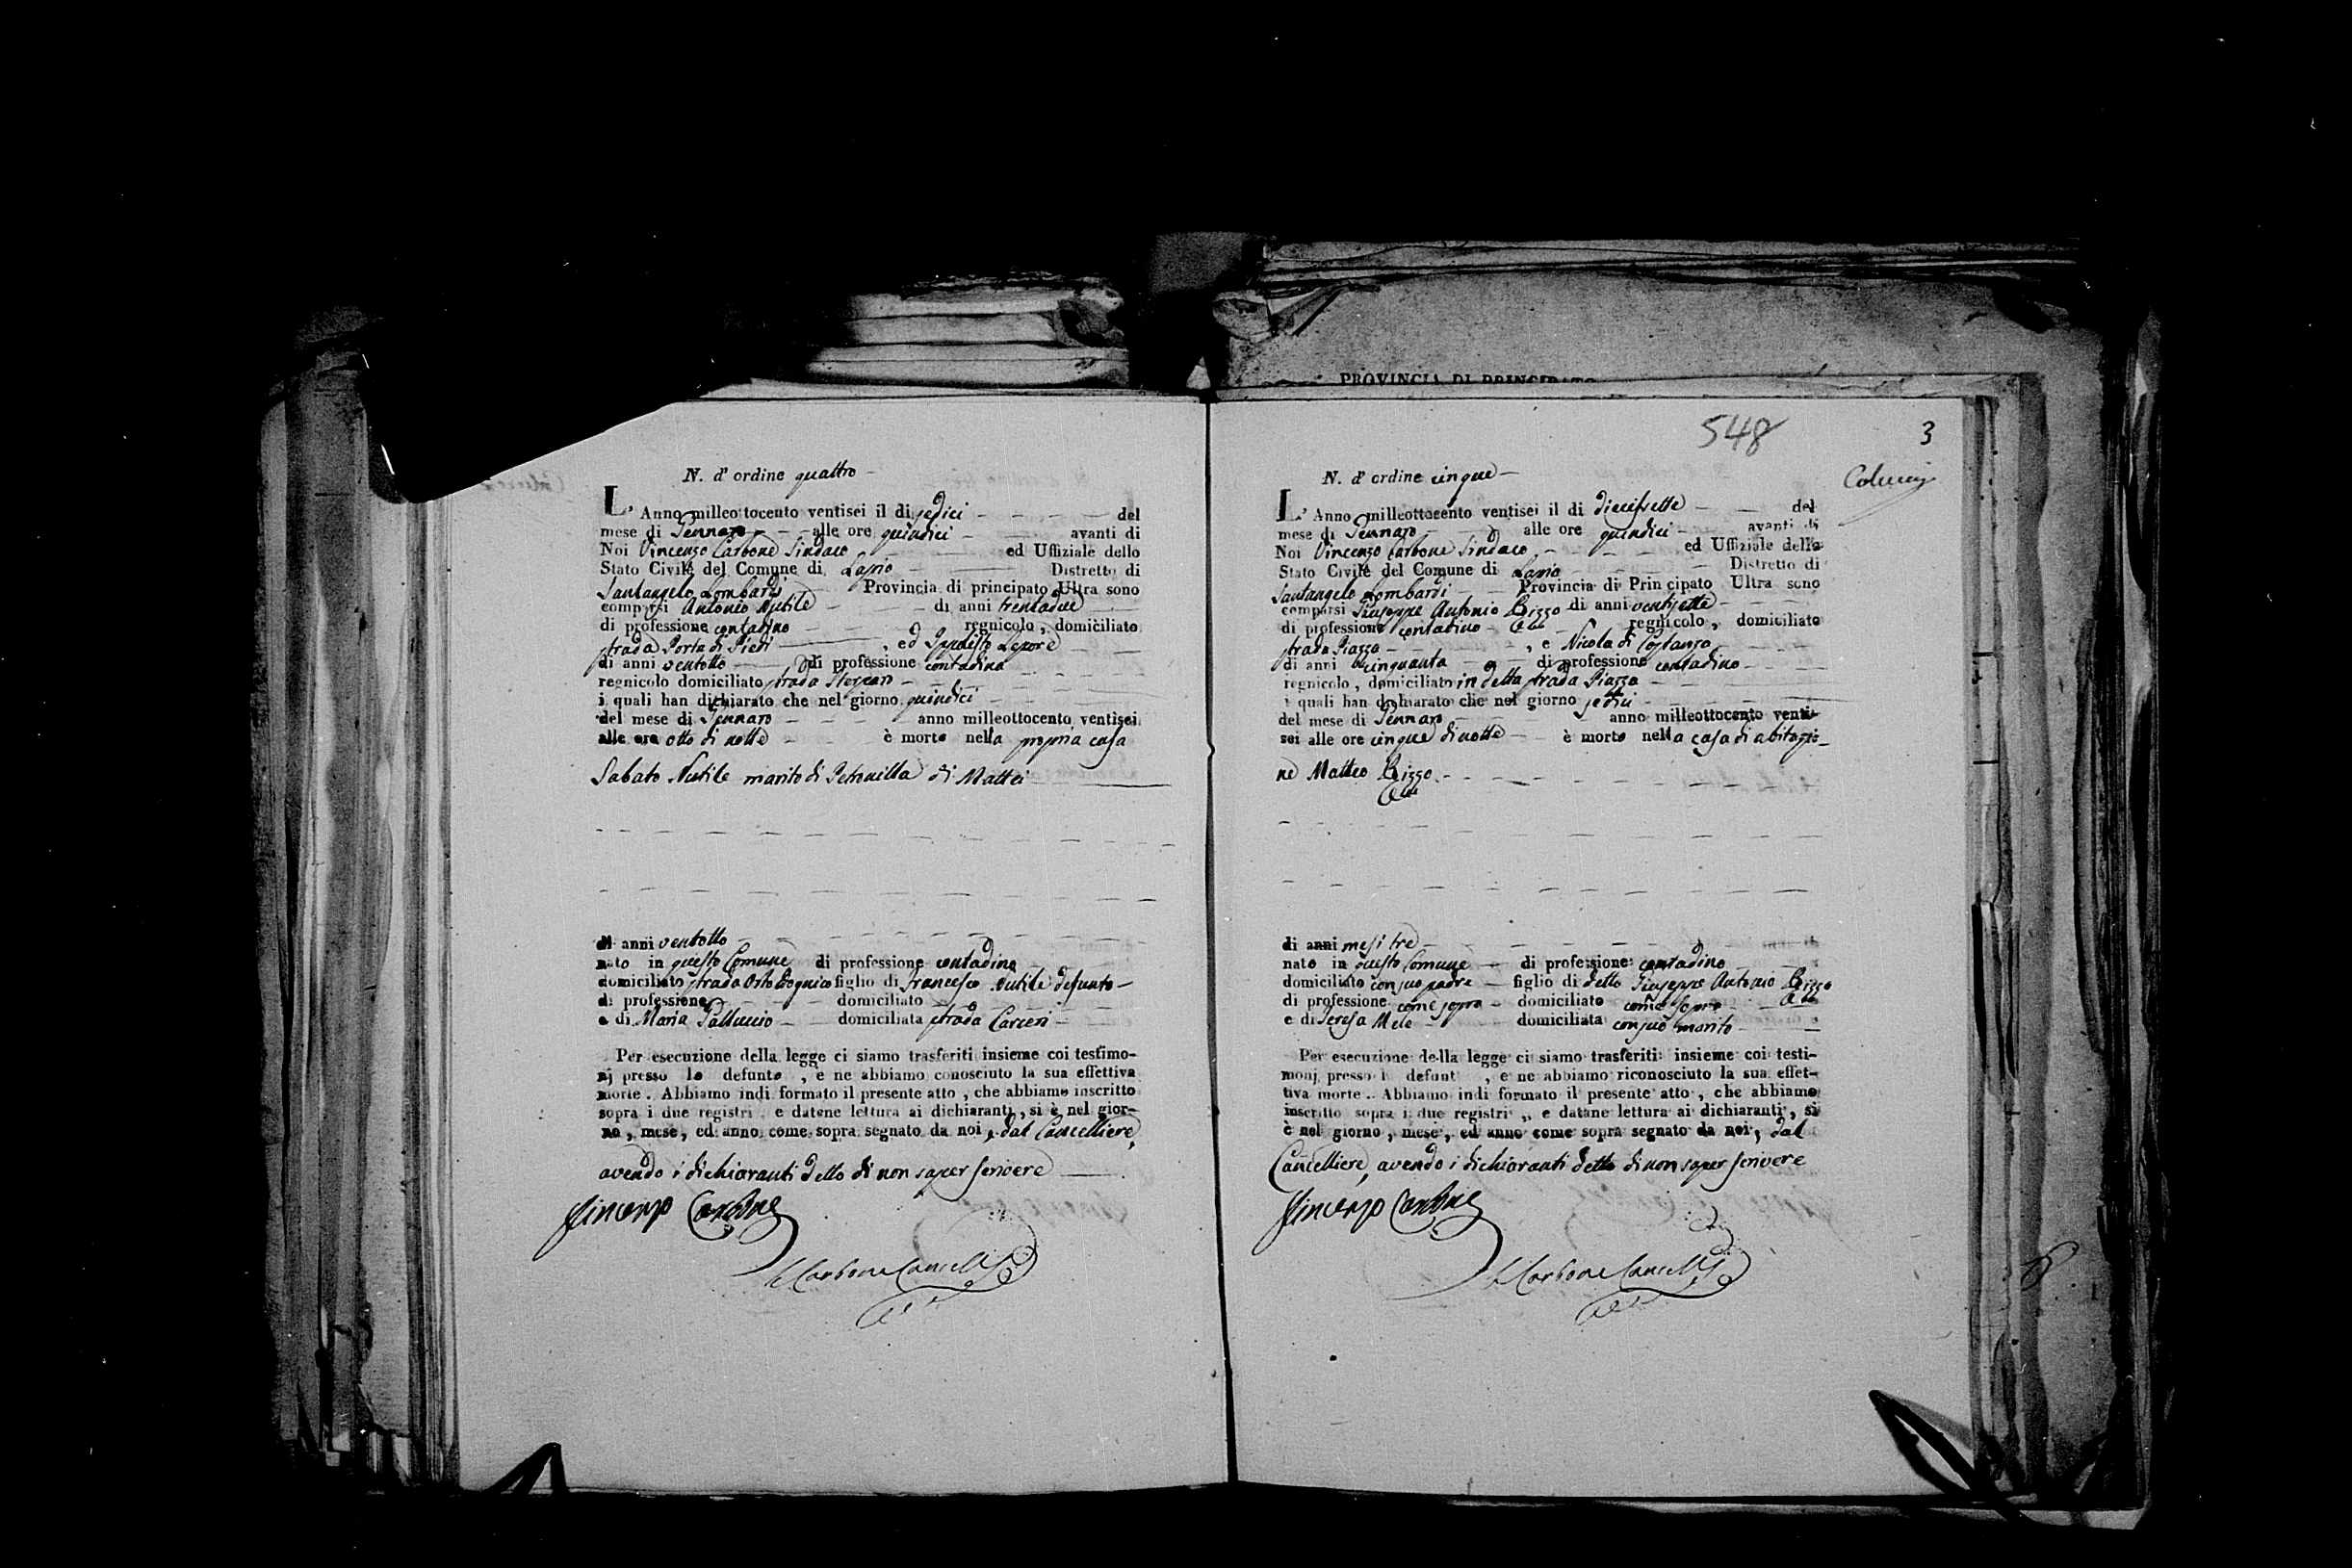 PROVINCIA DI PRINCIPATO
N. d' ordine quattro
L' Anno milleottocento ventisei il di sedici del
mese di Gennaro alle ore quindici avanti di
Noi Vincenzo Carbone Sindaco ed Uffiziale dello
Stato Civile del Comune di Lapio Distretto di
Santangelo Lombardi Provincia di principato Ultra sono
comparsi Antonio Nutile di anni trentadue
di professione contadino regnicolo, domiciliato
strada Porta di Piedi, ed Lepore
di anni ventotto di professione contadino
regnicolo domiciliato strada
i quali han dichiarato che nel giorno quindici
del mese di Gennaro anno milleottocento ventisei
alle ore otto di notte è morto nella propria casa
Sabato Nutile marito di Petronilla di Mattei
di anni ventotto
nato in questo Comune di professione contadino
domiciliato strada figlio di Francesco Nutile defunto
di professione domiciliato
e di Maria Palluccio domiciliata strada Carceri
Per esecuzione della legge ci siamo trasferiti insieme coi testimo-
nj presso lo defunto, e ne abbiamo conosciuto la sua effettiva
morte. Abbiamo indi formato il presente atto, che abbiamo inscritto
sopra i due registri e datene lettura ai dichiaranti, si è nel gior-
no, mese, ed anno come sopra segnato da noi, dal Cancelliere,
avendo i dichiaranti detto di non saper scrivere
Vincenzo Carbone
Carbone Cancell
548
3
Colucci
N. d' ordine cinque
L' Anno milleottocento ventisei il di diecissette del
mese di Gennaro alle ore quindici avanti di
Noi Vincenzo Carbone Sindaco ed Uffiziale dello
Stato Civile del Comune di Lapio Distretto di
Santangelo Lombardi Provincia di Principato Ultra sono
comparsi Giuseppe Antonio Rizzo di anni ventisette
di professione contadino regnicolo, domiciliato
strada Piazza, e Nicola di Costanzo
di anni cinquanta di professione contadino
regnicolo, domiciliato in detta strada Piazza
i quali han dichiarato che nel giorno sedici
del mese di Gennaro anno milleottocento venti-
sei alle ore cinque di notte è morto nella casa di abitazio-
ne Matteo Rizzo
di anni mesi tre
nato in questo Comune di professione contadino
domiciliato con suo padre figlio di detto Giuseppe Antonio Rizzo
di professione come sopra domiciliato come sopra
e di Teresa Mele domiciliata con suo marito
Per esecuzione della legge ci siamo trasferiti insieme coi testi-
monj presso l defunt, e ne abbiamo riconosciuto la sua effet-
tiva morte. Abbiamo indi formato il presente atto, che abbiamo
inscritto sopra i due registri, e datane lettura ai dichiaranti, si
è nel giorno, mese, ed anno come sopra segnato da noi, dal
Cancelliere, avendo i dichiaranti detto di non saper scrivere
Vincenzo Carbone
Carbone Cancell